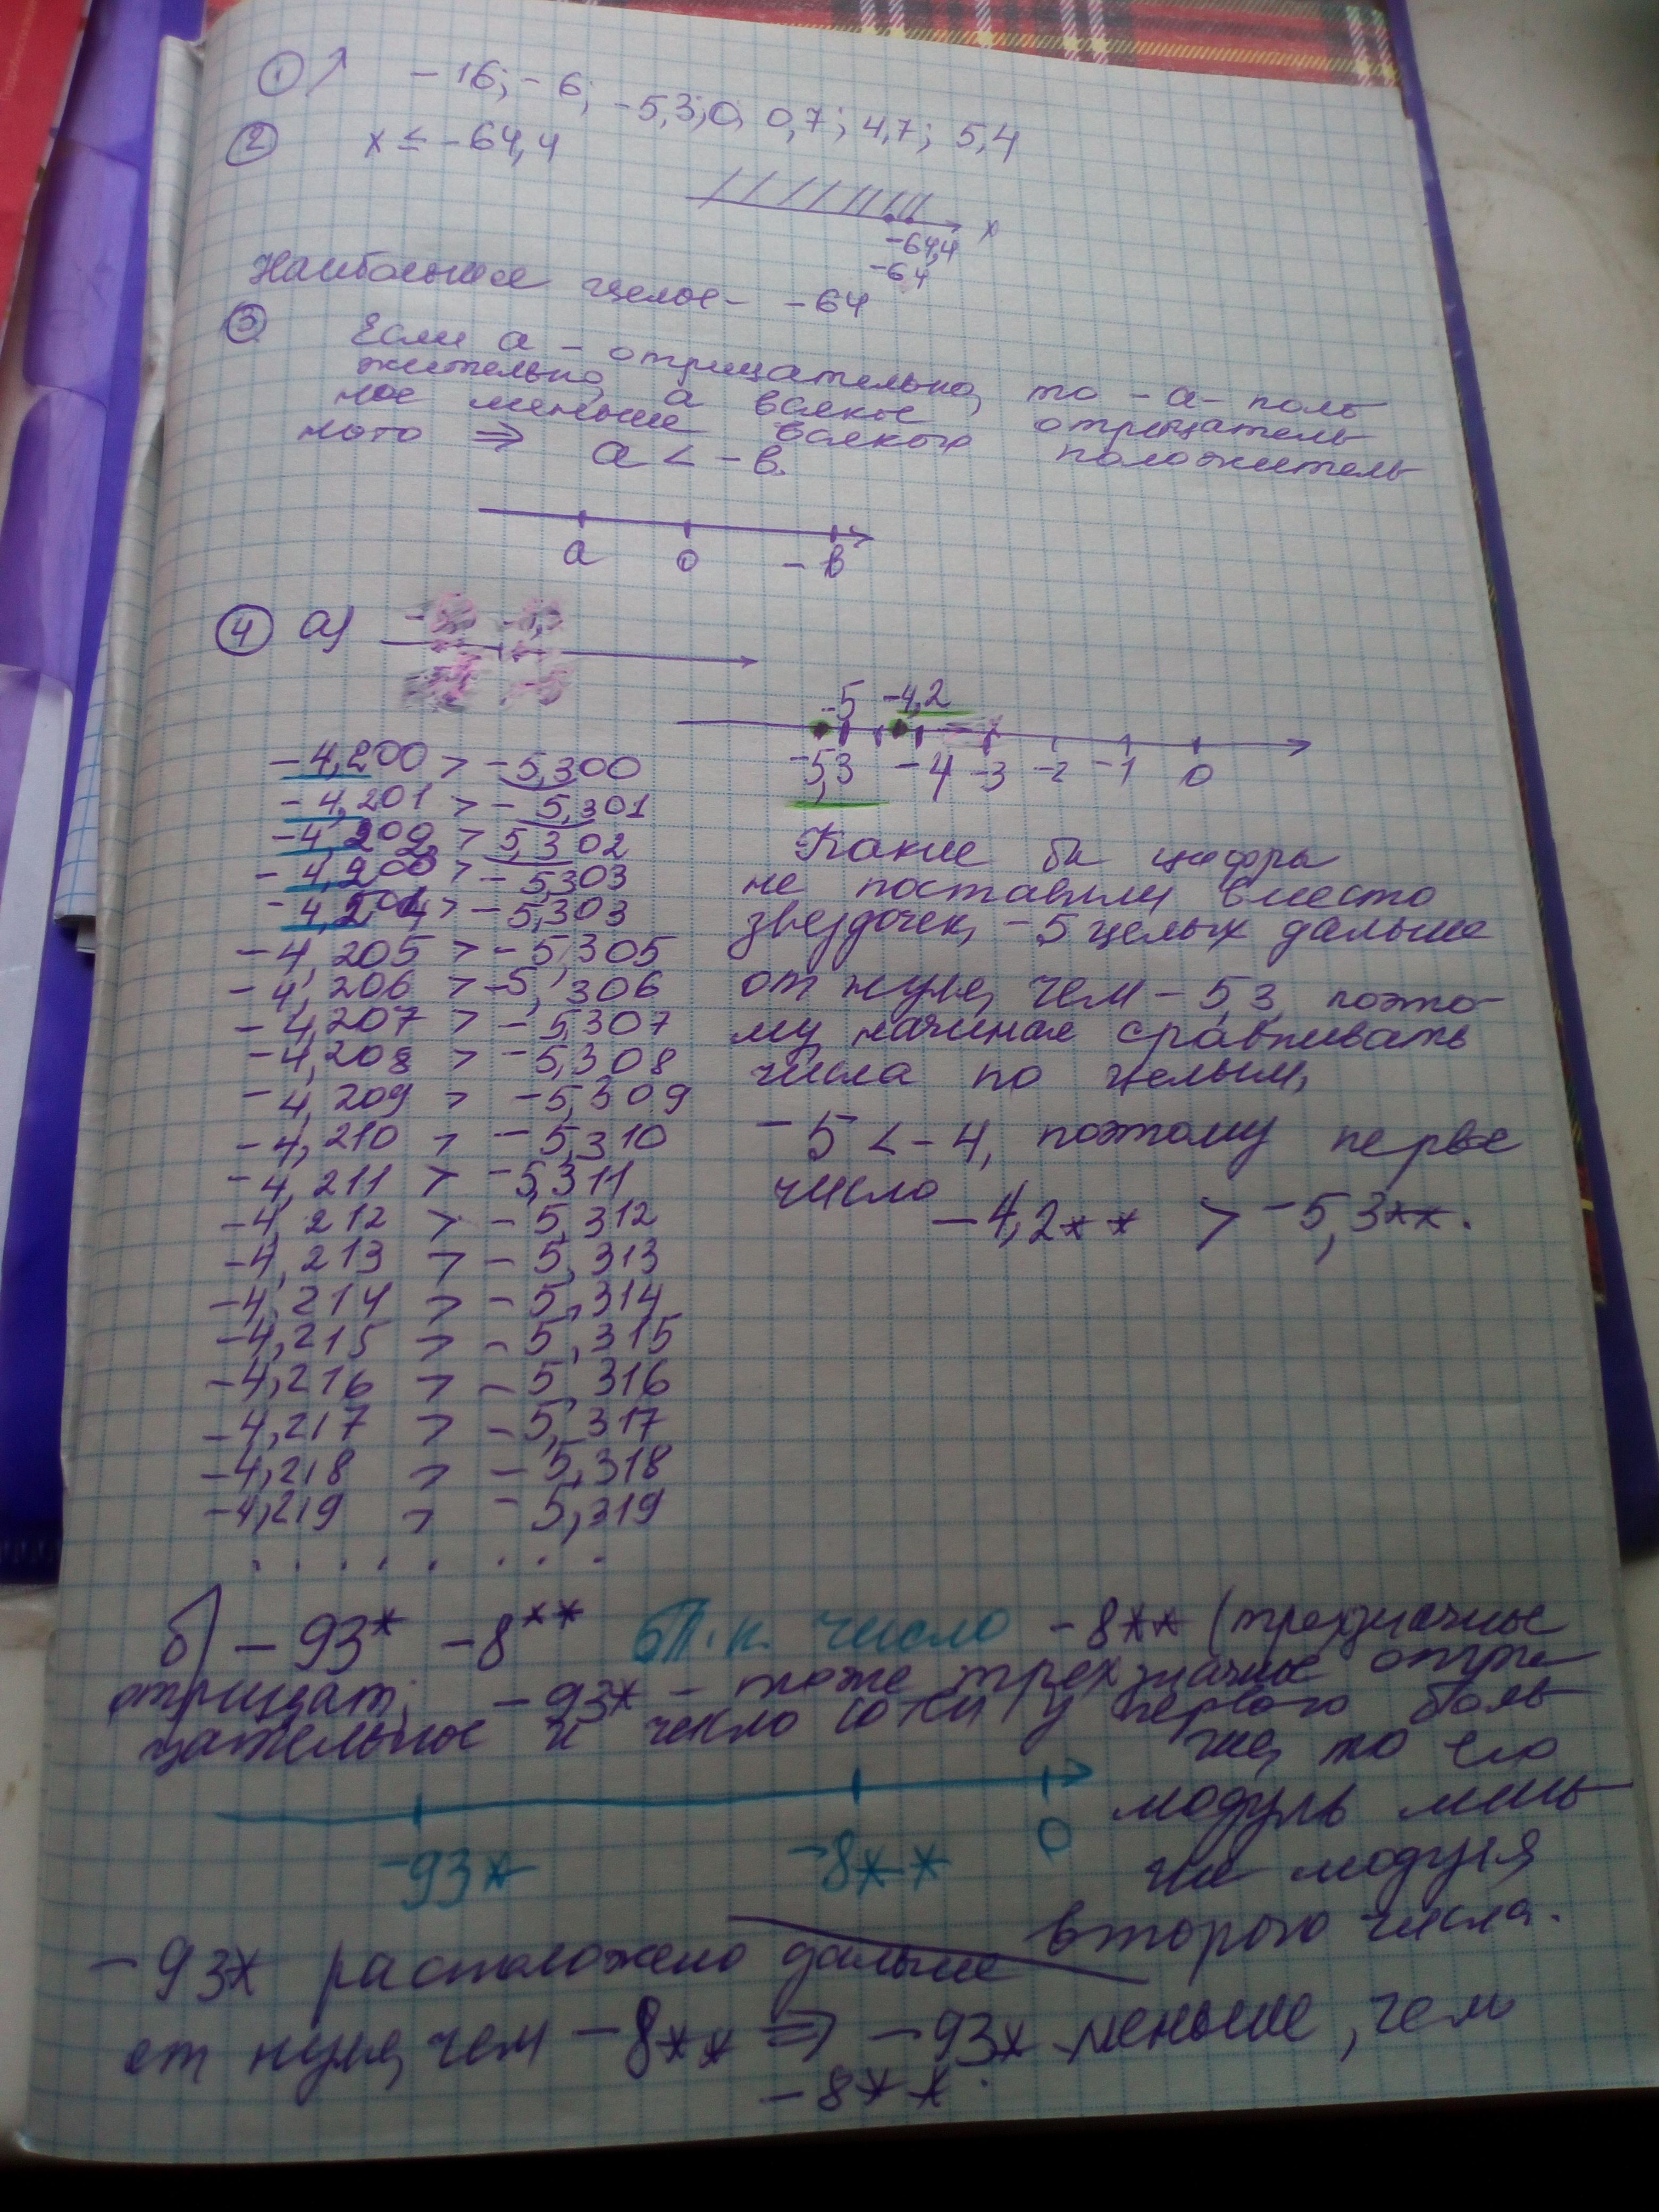 ① ↗ - 16; - 6; -5,3; 0; 0,7; 4,7; 5,4
② x ≤ -64,4
x
-64,4
-64
Наибольшее целое - -64
③ Если a - отрицательно, то -a- поло
жительно, а всякое отрицатель
ное меньше всякого положитель
ного ⇒ a < -в.
a 0 -в
④ а)
-5 -4,2
-5,3 -4 -3 -2 -1 0
-4,200 > -5,300
-4,201 > -5,301
-4,202 > 5,302
-4,200 > -5,303
-4,204 > -5,303
-4,205 > -5,305
-4,206 > -5,306
-4,207 > -5,307
-4,208 > -5,308
-4,209 > -5,309
-4,210 > -5,310
-4,211 > -5,311
-4,212 > -5,312
-4,213 > -5,313
-4,214 > -5,314
-4,215 > -5,315
-4,216 > -5,316
-4,217 > -5,317
-4,218 > -5,318
-4,219 > -5,319
. . . . . . . .
Какие бы цифры
не поставили вместо
звездочек, -5 целых дальше
от нуля, чем - 5,3, поэто-
му, начиная сравнивать
числа по целым,
-5 < -4, поэтому первое
число
-4,2** > -5,3**.
б) -93* -8** Т.к. число -8** (трехзначные
отрицат; -93* - тоже трехзначные отри
цательное и число сотен у первого боль
ше, то его
модуль мень
ше модуля
второго числа.
-93* -8** 0
-93* расположено дальше
от нуля, чем -8** ⇒ -93* меньше, чем
-8**.